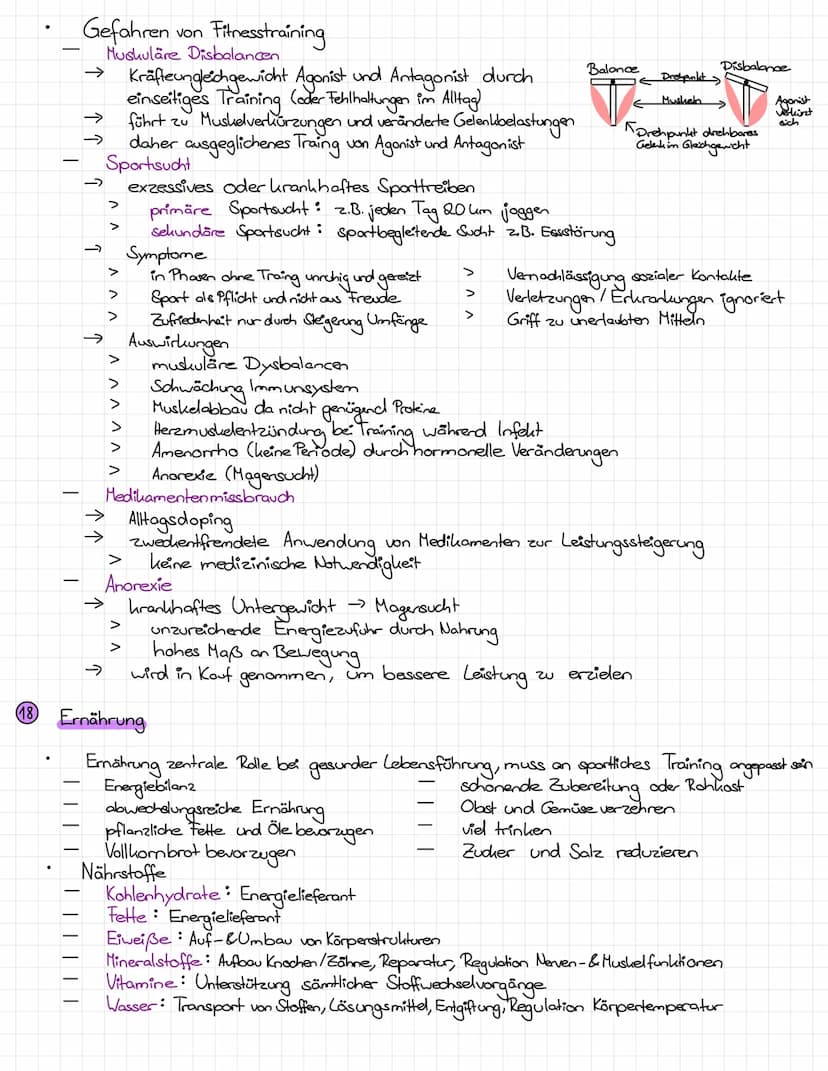 • Gefahren von Fitnesstraining
– Muskuläre Disbalancen
→ Kräfteungleichgewicht Agonist und Antagonist durch
einseitiges Training (oder Fehlhaltungen im Alltag)
→ führt zu Muskelverkürzungen und veränderte Gelenkbelastungen
→ daher ausgeglichenes Traing von Agonist und Antagonist
Balance
Disbalance
Drehpunkt
Muskeln
Agonist
verkürzt
sich
Drehpunkt drehbares
Gelenk im Gleichgewicht
– Sportsucht
→ exzessives oder krankhaftes Sporttreiben
> primäre Sportsucht: z.B. jeden Tag 20 km joggen
> sekundäre Sportsucht: sportbegleitende Sucht z.B. Essstörung
→ Symptome
> in Phasen ohne Traing unruhig und gereizt
> Sport als Pflicht und nicht aus Freude
> Zufriedenheit nur durch Steigerung Umfänge
> Vernachlässigung sozialer Kontakte
> Verletzungen / Erkrankungen ignoriert
> Griff zu unerlaubten Mitteln
→ Auswirkungen
> muskuläre Dysbalancen
> Schwächung Immunsystem
> Muskelabbau da nicht genügend Proteine
> Herzmuskelentzündung bei Training während Infekt
> Amenorrho (keine Periode) durch hormonelle Veränderungen
> Anorexie (Magersucht)
– Medikamentenmissbrauch
→ Alltagsdoping
→ zweckentfremdete Anwendung von Medikamenten zur Leistungssteigerung
> keine medizinische Notwendigkeit
– Anorexie
→ krankhaftes Untergewicht → Magersucht
> unzureichende Energiezufuhr durch Nahrung
> hohes Maß an Bewegung
→ wird in Kauf genommen, um bessere Leistung zu erzielen
18 Ernährung
• Ernährung zentrale Rolle bei gesunder Lebensführung, muss an sportliches Training angepasst sein
– Energiebilanz
– abwechslungsreiche Ernährung
– pflanzliche Fette und Öle bevorzugen
– Vollkornbrot bevorzugen
– schonende Zubereitung oder Rohkost
– Obst und Gemüse verzehren
– viel trinken
– Zucker und Salz reduzieren
• Nährstoffe
– Kohlenhydrate: Energielieferant
– Fette: Energielieferant
– Eiweiße: Auf- & Umbau von Körperstrukturen
– Mineralstoffe: Aufbau Knochen/Zähne, Reparatur, Regulation Nerven- & Muskelfunktionen
– Vitamine: Unterstützung sämtlicher Stoffwechselvorgänge
– Wasser: Transport von Stoffen, Lösungsmittel, Entgiftung, Regulation Körpertemperatur